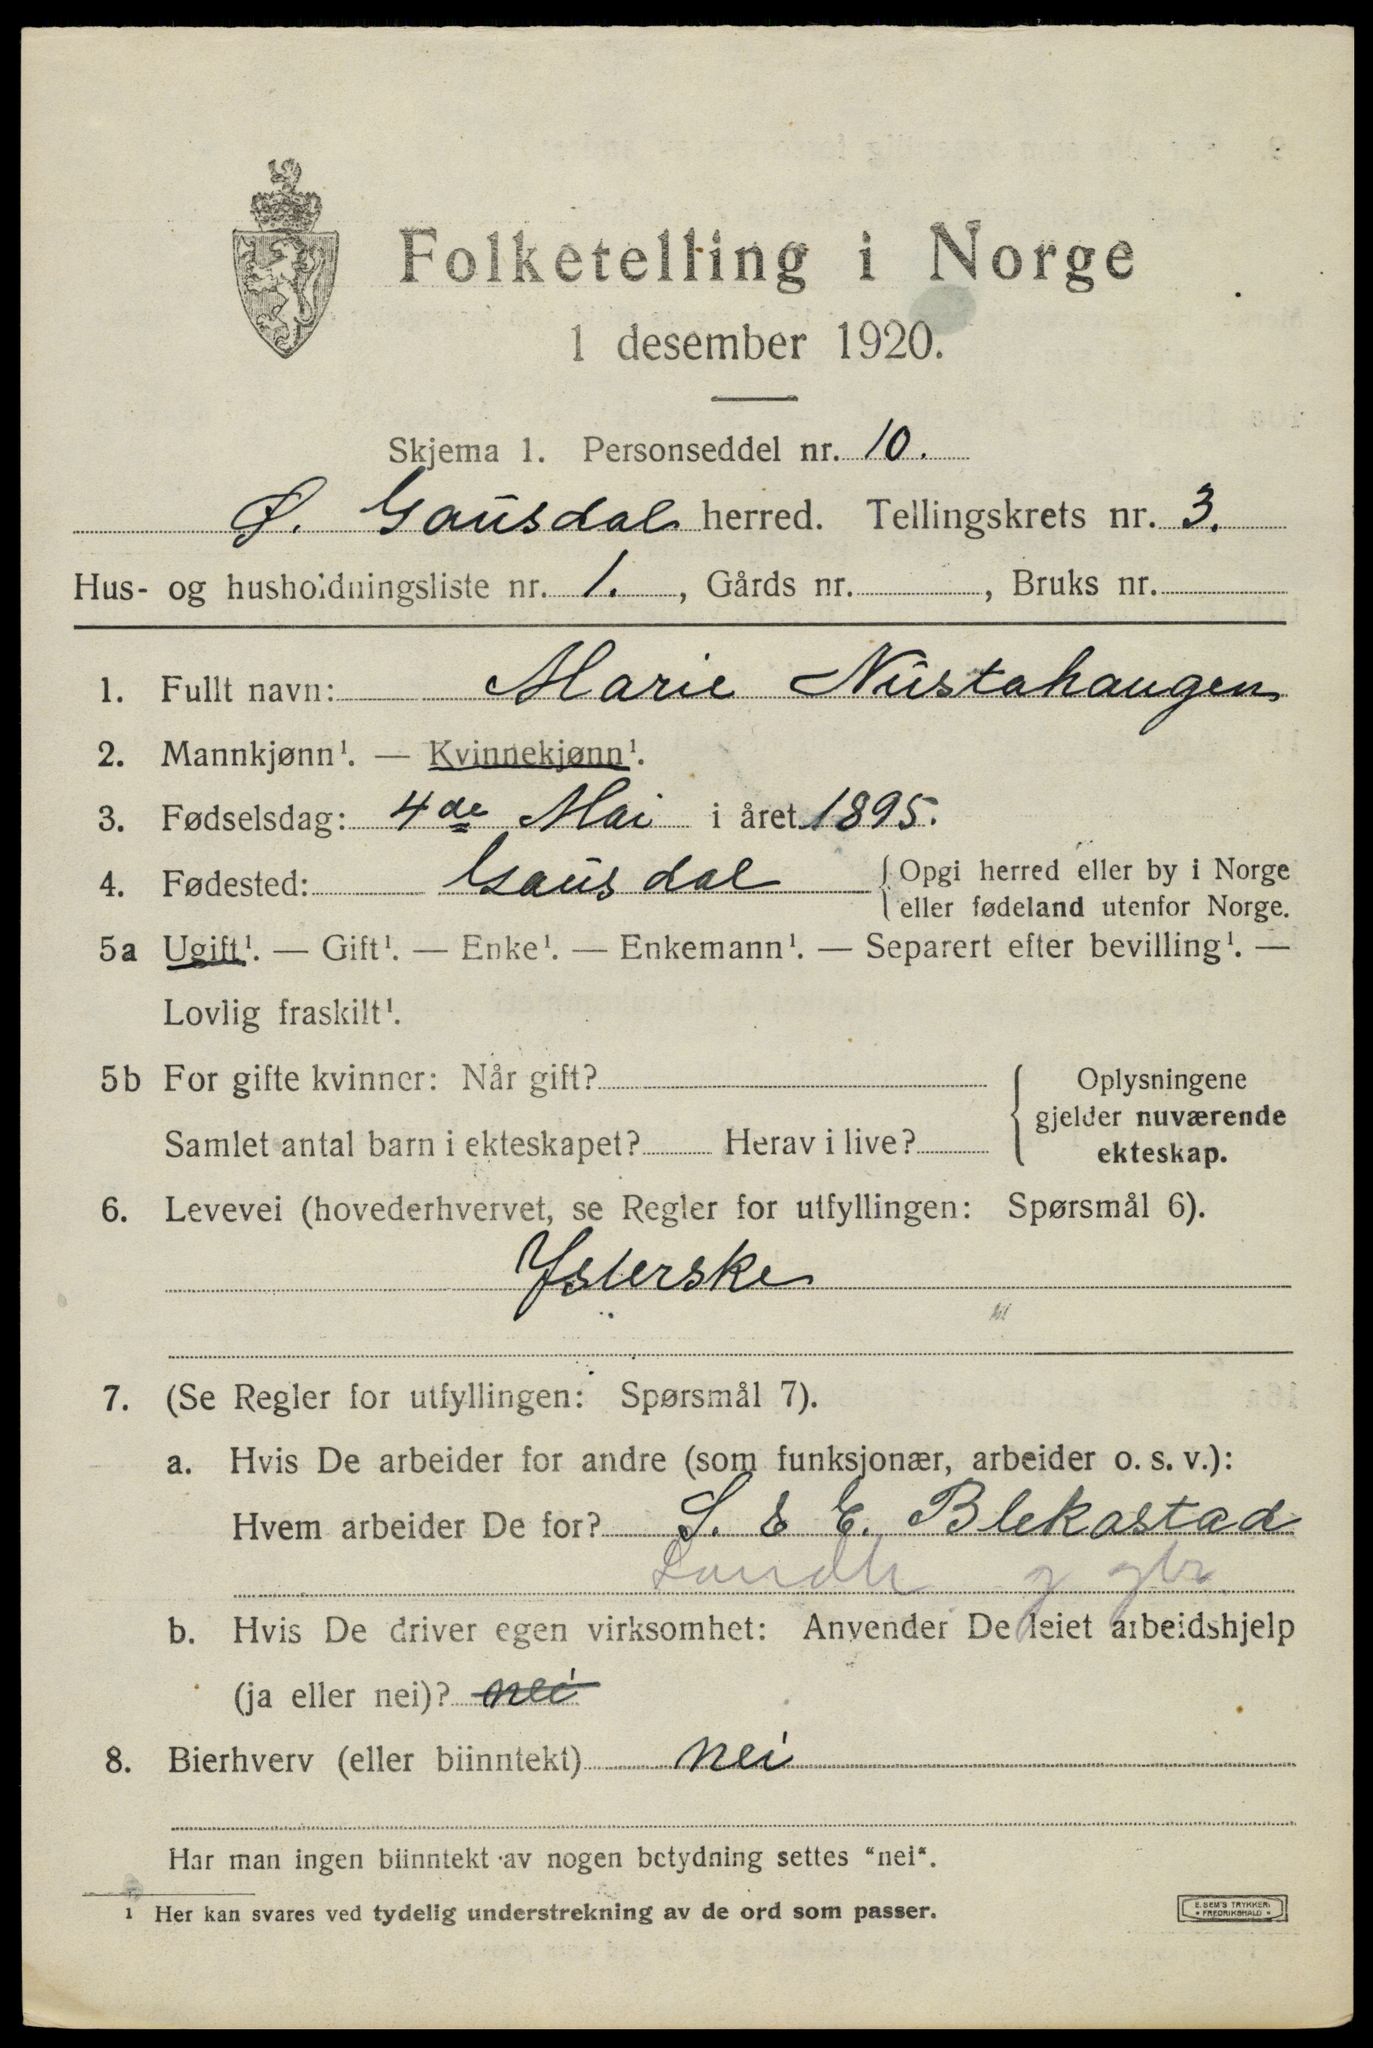 Folketelling i Norge
1 desember 1920.
Skjema 1. Personseddel nr. 10.
Ø. Gausdal herred. Tellingskrets nr. 3.
Hus- og husholdningsliste nr. 1., Gårds nr. , Bruks nr.
1. Fullt navn: Marie Nustahaugen
2. Mannkjønn¹. — Kvinnekjønn¹.
3. Fødselsdag: 4de Mai i året 1895.
4. Fødested: Gausdal {Opgi herred eller by i Norge
eller fødeland utenfor Norge.
5a Ugift¹. — Gift¹. — Enke¹. — Enkemann¹. — Separert efter bevilling¹. —
Lovlig fraskilt¹.
5b For gifte kvinner: Når gift?
Samlet antal barn i ekteskapet? Herav i live?
{ Oplysningene
gjelder nuværende
ekteskap.
6. Levevei (hovederhvervet, se Regler for utfyllingen: Spørsmål 6).
Ysterske
7. (Se Regler for utfyllingen: Spørsmål 7).
a. Hvis De arbeider for andre (som funksjonær, arbeider o. s. v.):
Hvem arbeider De for? S. & E. Blekastad
Landh
b. Hvis De driver egen virksomhet: Anvender De leiet arbeidshjelp
(ja eller nei)? nei
8. Bierhverv (eller biinntekt) nei
Har man ingen biinntekt av nogen betydning settes "nei".
¹ Her kan svares ved tydelig understrekning av de ord som passer.
E. SEM'S TRYKKERI
• FREDRIKSHALD •